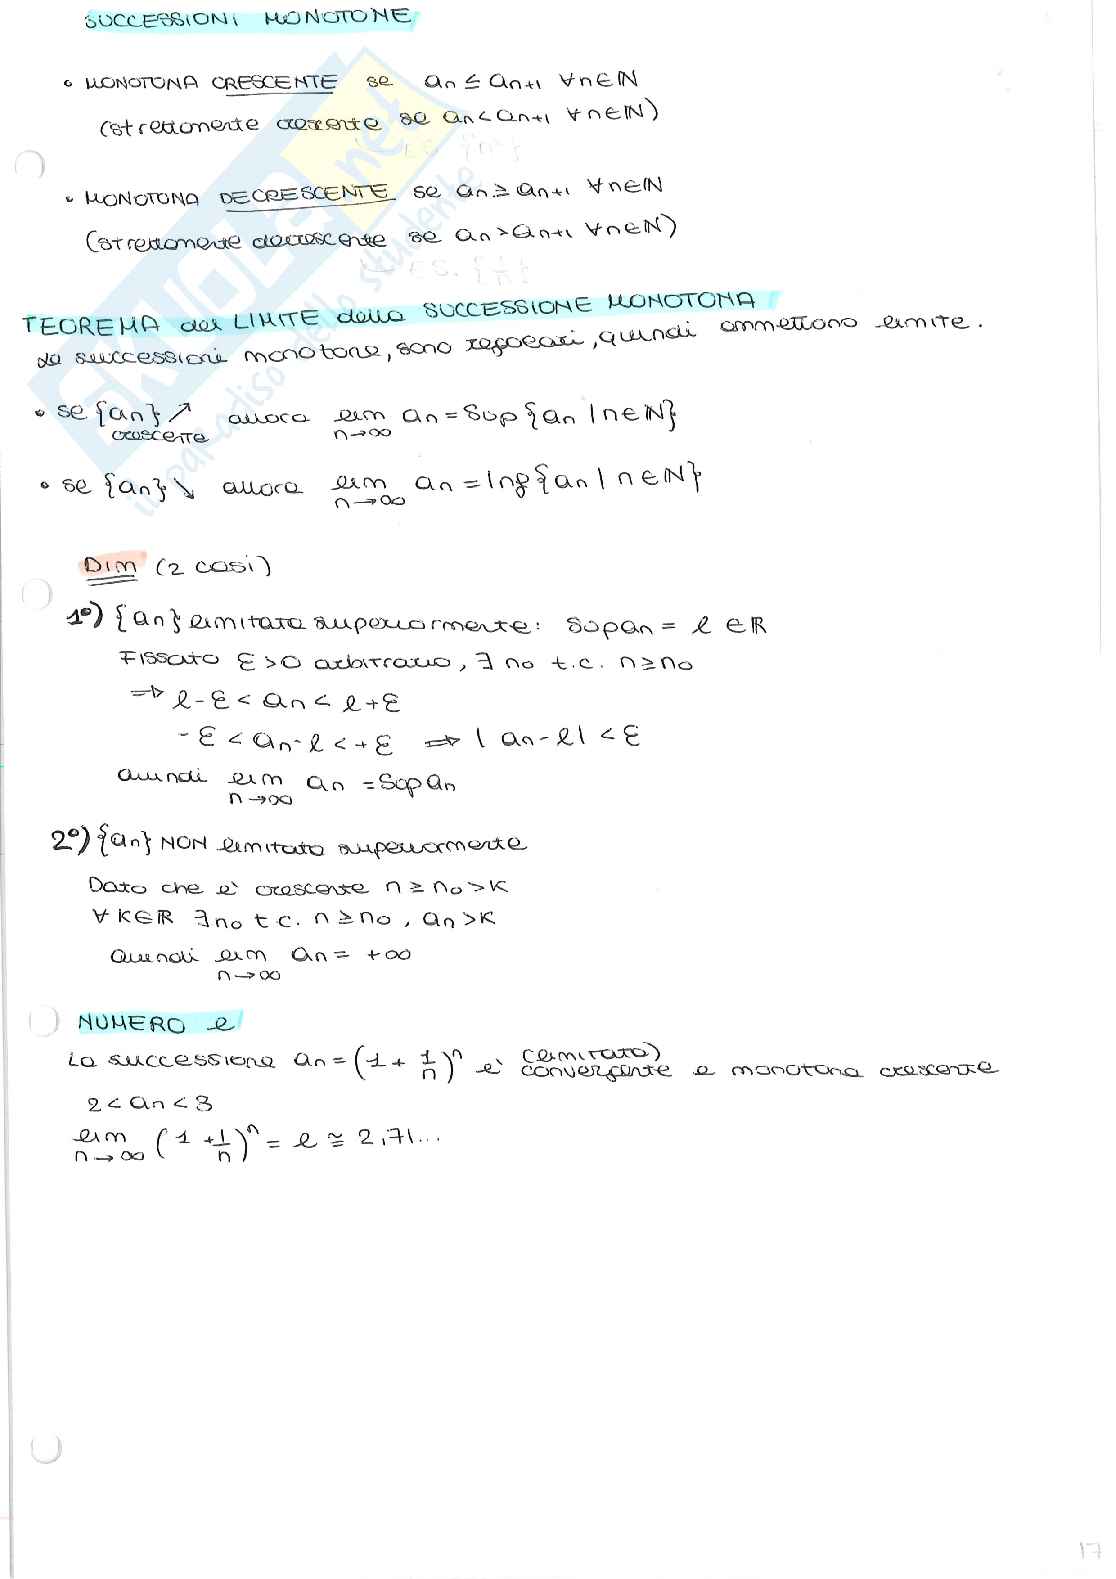 SUCCESSIONI MONOTONE
• MONOTONA CRESCENTE se an ≤ an+1 ∀n∈ℕ
(strettamente crescente se an < an+1 ∀n∈ℕ)
• MONOTONA DECRESCENTE se an ≥ an+1 ∀n∈ℕ
(strettamente decrescente se an > an+1 ∀n∈ℕ)
TEOREMA del LIMITE della SUCCESSIONE MONOTONA
Le successioni monotone, sono regolari, quindi ammettono limite.
• se {an} ↗ allora lim an = Sup {an | n∈ℕ}
crescente n→∞
• se {an} ↘ allora lim an = Inf {an | n∈ℕ}
n→∞
Dim (2 casi)
1°) {an} limitata superiormente: Sup an = l ∈ℝ
Fissato ε>0 arbitrario, ∃ no t.c. n≥no
⇒ l-ε < an < l+ε
-ε < an-l < +ε ⇒ | an-l | < ε
quindi lim an = Sup an
n→∞
2°) {an} NON limitata superiormente
Dato che è crescente n ≥ no > K
∀ K∈ℝ ∃ no t.c. n ≥ no, an > K
Quindi lim an = +∞
n→∞
NUMERO e
La successione an = (1 + 1/n)^n è (limitata) convergente e monotona crescente
2 < an < 3
lim (1 + 1/n)^n = e ≅ 2,71...
n→∞
17
SKUOLA.net
il paradiso dello studente